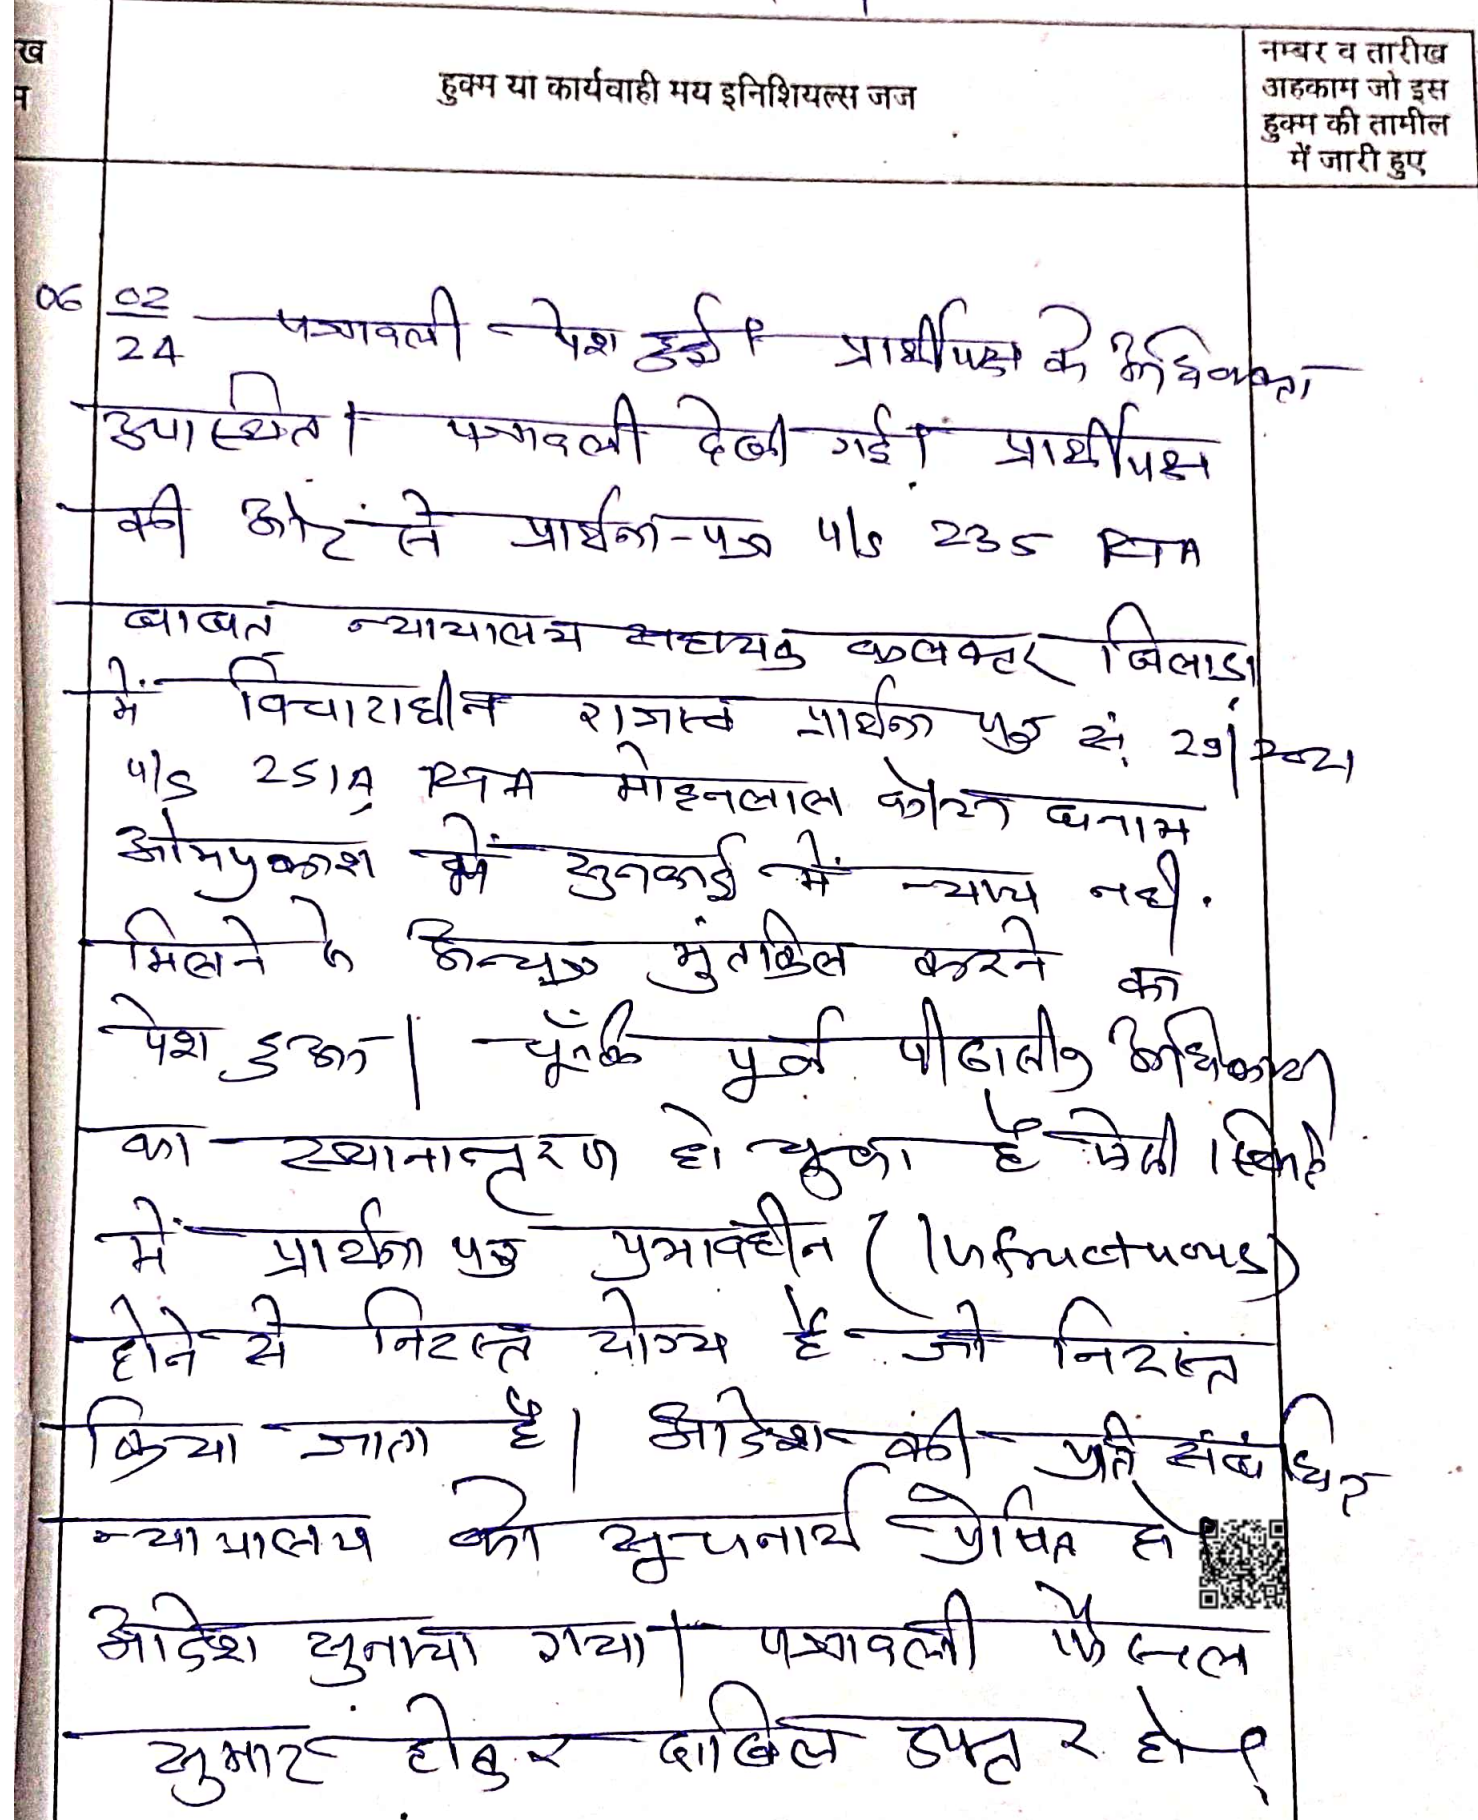 ख
हुक्म या कार्यवाही मय इनिशियल्स जज
नम्बर व तारीख
अहकाम जो इस
हुक्म की तामील
में जारी हुए
06 02
24 पत्रावली पेश हुई। प्रार्थीपक्ष के अधिवक्ता
उपास्थित। पत्रावली देखी गई। प्रार्थीपक्ष
की ओर से प्रार्थना-पत्र u/s 235 RTA
बाबत न्यायालय सहायक कलक्टर बिलाडा
में विचाराधीन राजस्व प्रार्थना पत्र सं. 29/2021
u/s 251A RTA मोहनलाल बनाम
ओमप्रकाश में सुनवाई में न्याय नही
मिलने से अन्यत्र मुंतकिल करने का
पेश हुआ। चूँकि पूर्व पीठासीन अधिकारी
का स्थानान्तरण हो चुका है ऐसी स्थिति
में प्रार्थना पत्र प्रभावहीन (Infructuous)
होने से निरस्त योग्य है जो निरस्त
किया जाता है। आदेश की प्रति संबंधित
न्यायालय को सूचनार्थ प्रेषित हो
आदेश सुनाया गया। पत्रावली फैसल
सुमार होकर दाखिल दफ्तर हो।